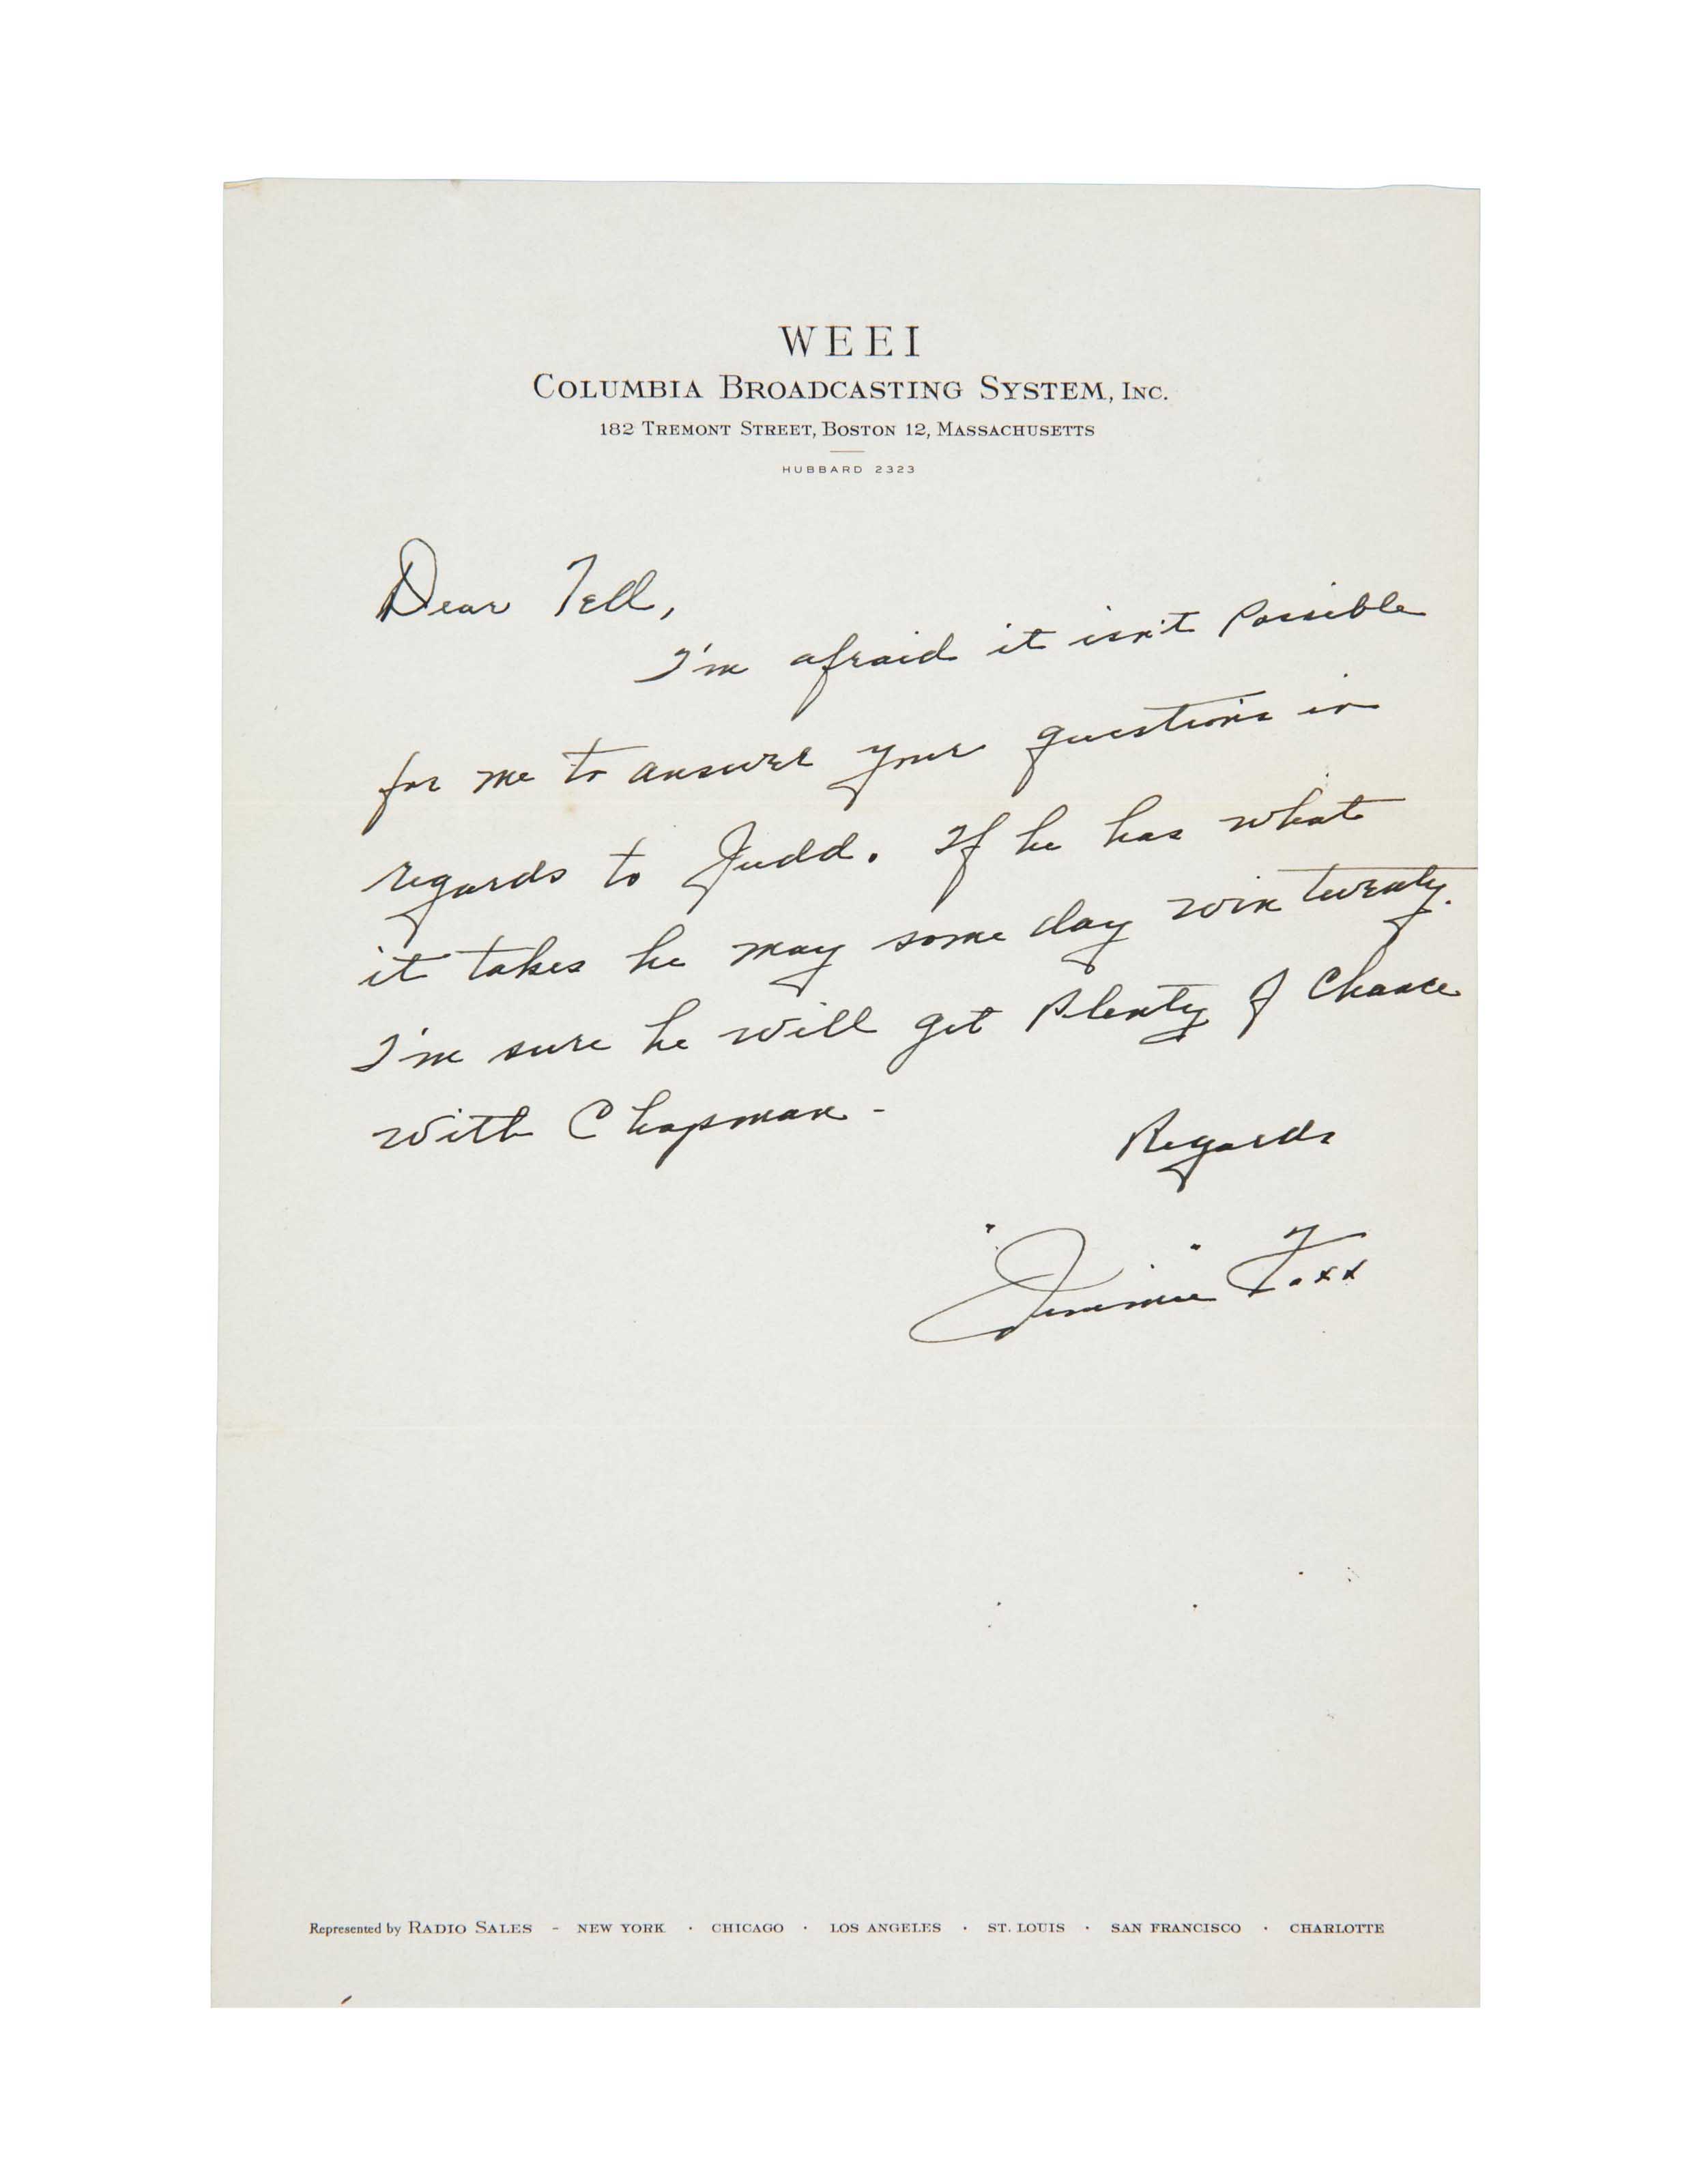 WEEI
COLUMBIA BROADCASTING SYSTEM, INC.
182 TREMONT STREET, BOSTON 12, MASSACHUSETTS
HUBBARD 2323
Dear Tell,
I'm afraid it isn't possible
for me to answer your questions in
regards to Judd. If he has what
it takes he may some day win twenty.
I'm sure he will get plenty of chance
with Chapman -
Regards
"Jimmie" Foxx
Represented by RADIO SALES - NEW YORK · CHICAGO · LOS ANGELES · ST. LOUIS · SAN FRANCISCO · CHARLOTTE